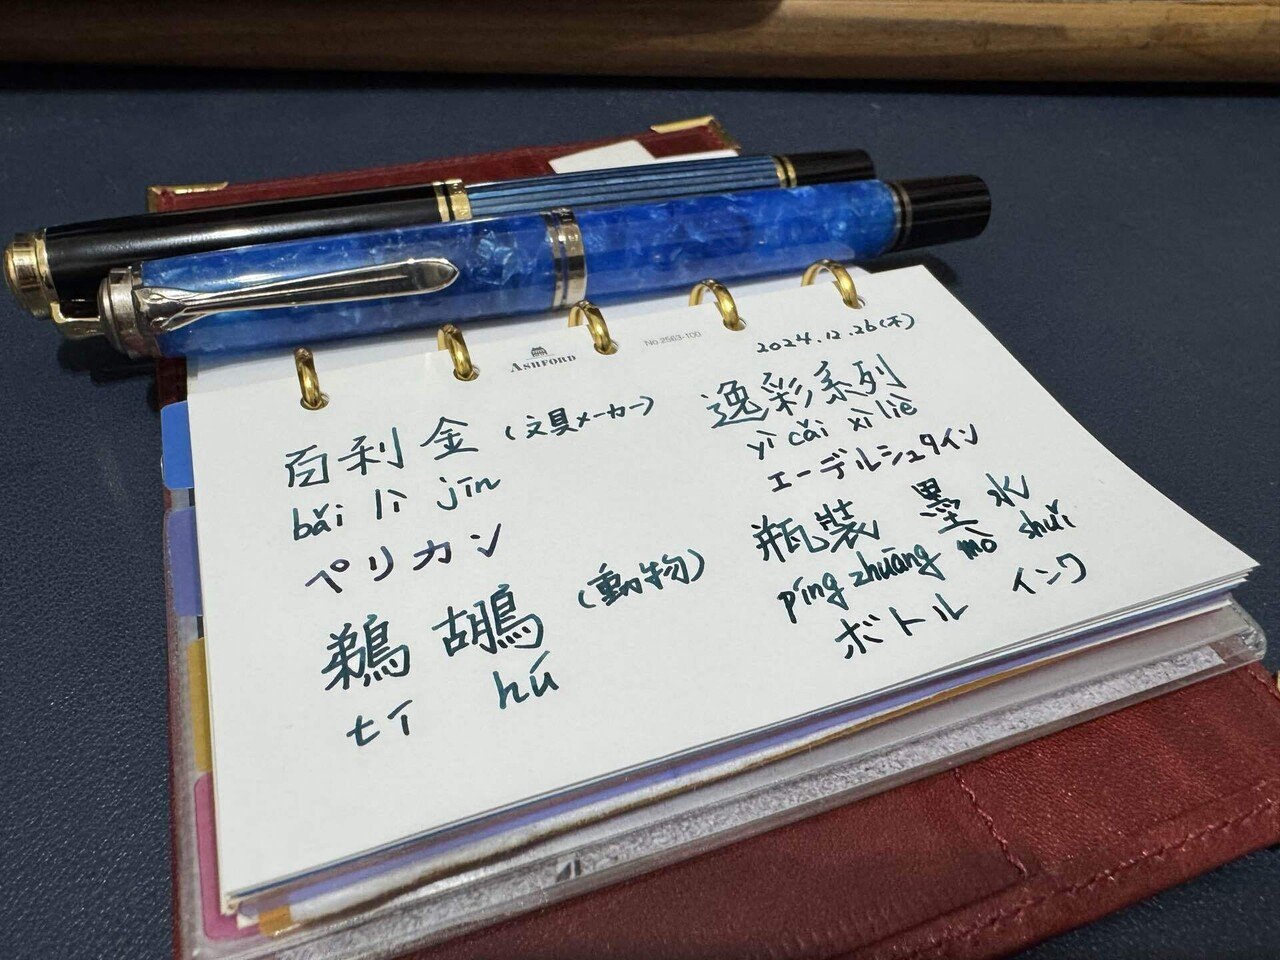 ASHFORD
No.2563-100
2024.12.26(木)
百利金 (文具メーカー)
bǎi lì jīn
ペリカン
鵜鶘 (動物)
tí hú
逸彩系列
yì cǎi xì liè
エーデルシュタイン
瓶装 墨水
píng zhuāng mò shuǐ
ボトル インク